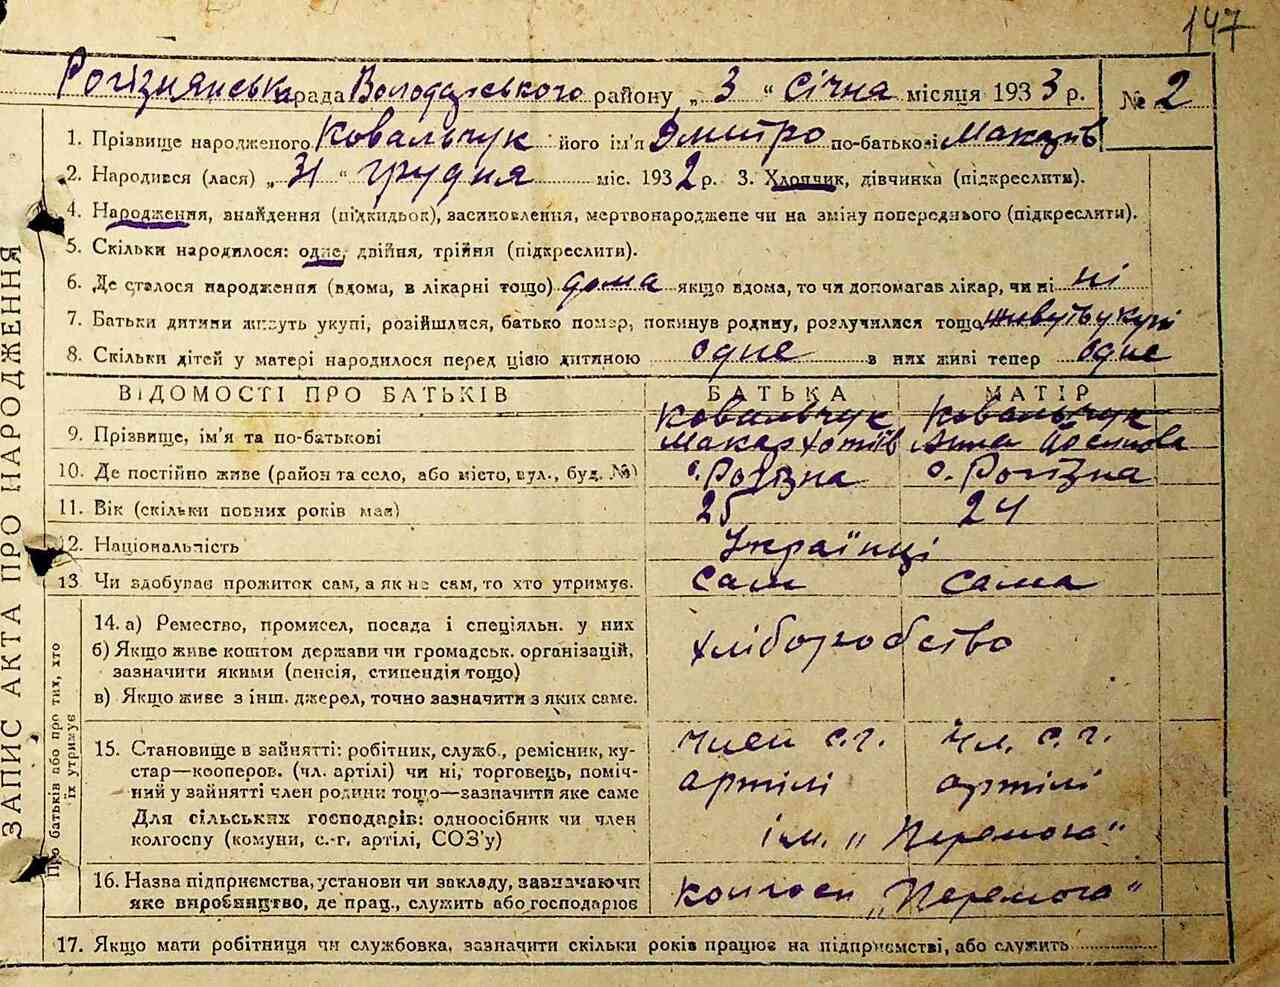 147
Рогізнянська рада Володарського району „ 3 “ Січня місяця 1933 р. № 2
1. Прізвище народженого Ковальчук його ім'я Дмитро по-батькові Макарів
2. Народився (лася) „ 31 “ грудня міс. 1932 р. 3. Хлопчик, дівчинка (підкреслити).
4. Народження, знайдення (підкидьок), засиновлення, мертвонароджене чи на зміну попереднього (підкреслити).
5. Скільки народилося: одне, двійня, трійня (підкреслити).
6. Де сталося народження (вдома, в лікарні тощо) дома якщо вдома, то чи допомагав лікар, чи ні ні
7. Батьки дитини живуть укупі, розійшлися, батько помер, покинув родину, розлучилися тощо живуть укупі
8. Скільки дітей у матері народилося перед цією дитиною одне з них живі тепер одне
ВІДОМОСТІ ПРО БАТЬКІВ БАТЬКА МАТІР
Ковальчук Ковальчук
9. Прізвище, ім'я та по-батькові Макар Анна
10. Де постійно живе (район та село, або місто, вул., буд. №) с. Рогізна с. Рогізна
11. Вік (скільки повних років має) 25 24
12. Національність Українці
13. Чи здобуває прожиток сам, а як не сам, то хто утримує. сам сама
14. а) Ремество, промисел, посада і спеціяльн. у них
б) Якщо живе коштом держави чи громадськ. організацій, хліборобство
зазначити якими (пенсія, стипендія тощо)
в) Якщо живе з інш. джерел, точно зазначити з яких саме.
15. Становище в зайнятті: робітник, служб., ремісник, ку- член с.г. чл. с.г.
стар—кооперов. (чл. артілі) чи ні, торговець, поміч- артілі артілі
ний у зайнятті член родини тощо—зазначити яке саме
Для сільських господарів: одноосібник чи член ім. „Перемога“
колгоспу (комуни, с.-г. артілі, СОЗ'у)
16. Назва підприємства, установи чи закладу, зазначаючи колгосп „Перемога“
яке виробництво, де прац., служить або господарює
17. Якщо мати робітниця чи службовка, зазначити скільки років працює на підприємстві, або служить
ЗАПИС АКТА ПРО НАРОДЖЕННЯ
Про батьків або про тих, хто
їх утримує